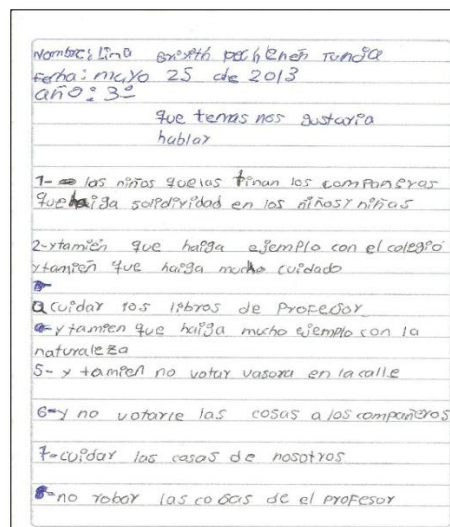 Nombre: Lina Brixith pechenen Tundia
Fecha: mayo 25 de 2013
año: 3º
que temas nos gustaria
hablar
1- los niños que las tinan los compañeras
que haiga solidiridad en los niños y niñas
2-ytamien que haiga ejemplo con el colegio
ytamien que haiga mucho cuidado
a cuidar los libros de Profesor
y tamien que haiga mucho ejemplo con la
naturaleza
5- y tamien no votar vasora en la calle
6-y no votarle las cosas a los compañeros
7-cuidar las cosas de nosotros
8-no robar las cosas de el profesor